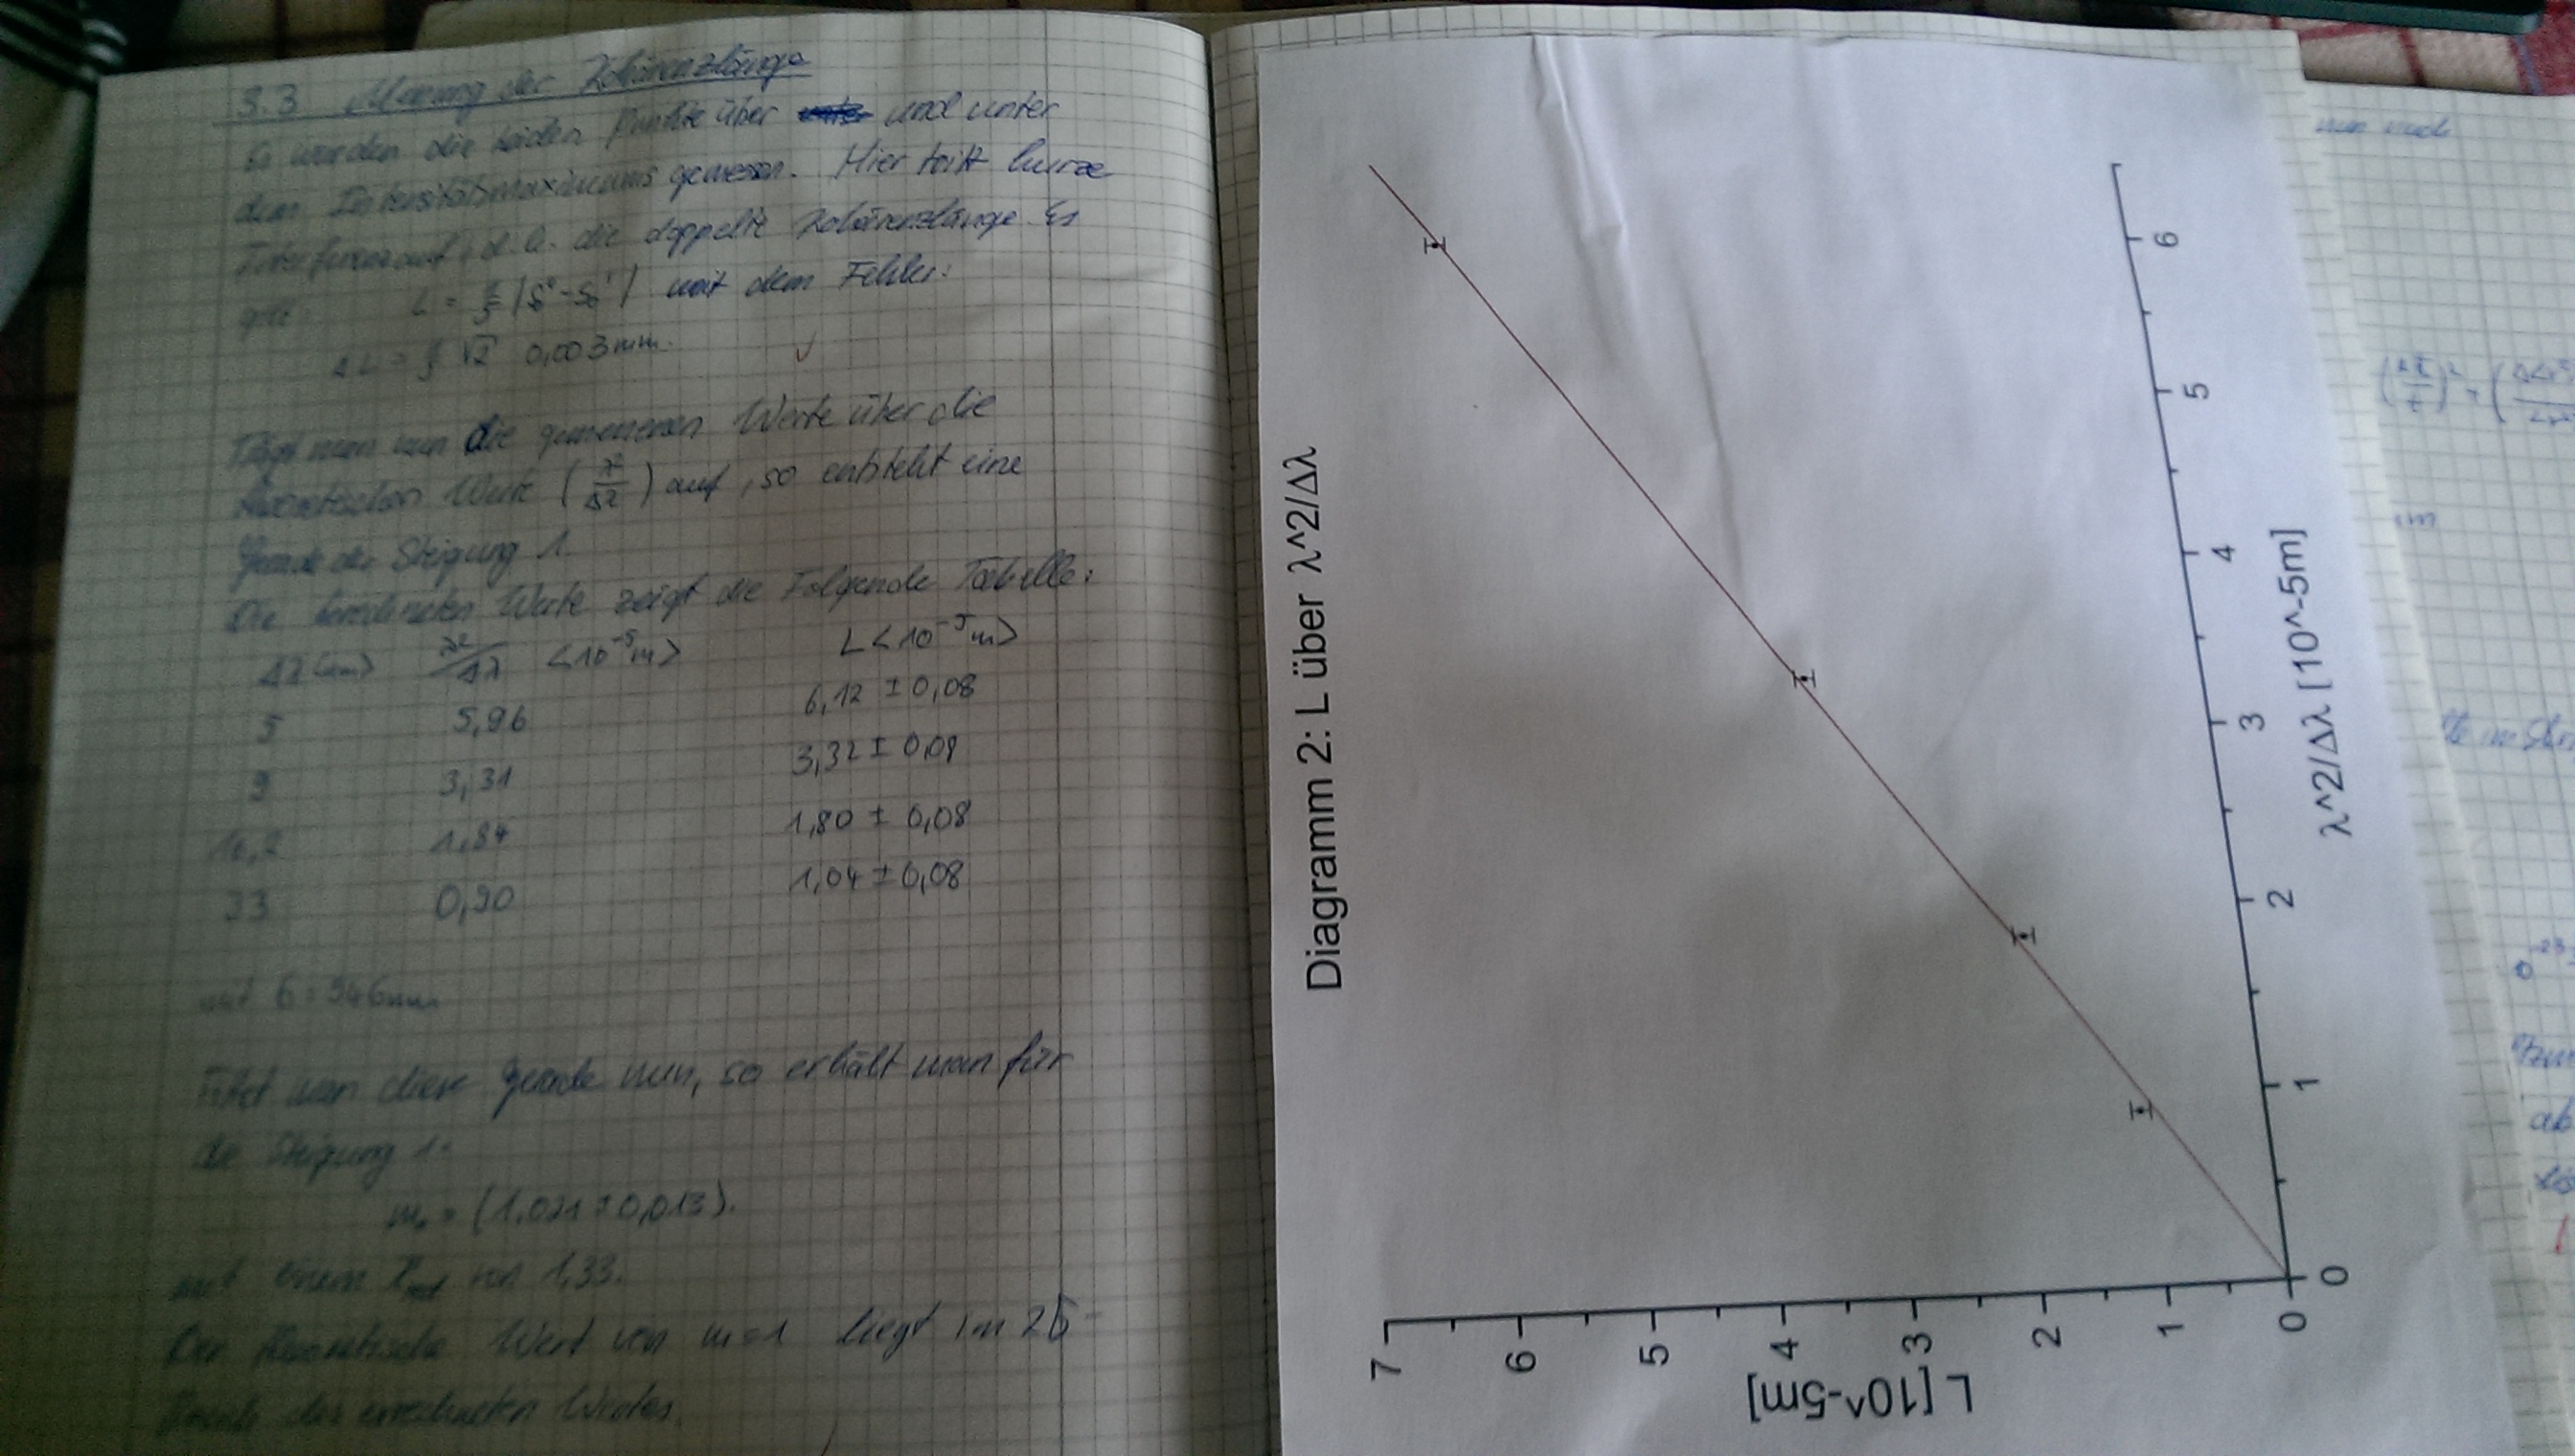 3.3 Messung der Kohärenzlänge
Es werden die beiden Punkte über und unter
dem Intensitätsmaximums gemessen. Hier tritt kurze
Interferenz auf, d.h. die doppelte Kohärenzlänge. Es
L = |S₀'' - S₀'| mit dem Fehler:
ΔL = √2 0,003mm.
Trägt man nun die gemessenen Werte über die
theoretischen Werte (λ²/Δλ) auf, so entsteht eine
Gerade der Steigung 1.
Die berechneten Werte zeigt die Folgende Tabelle:
Δλ <nm> λ²/Δλ <10⁻⁵m> L <10⁻⁵m>
5 5,96 6,12 ± 0,08
9 3,31 3,32 ± 0,09
16,2 1,84 1,80 ± 0,08
33 0,90 1,04 ± 0,08
mit 546nm
Fittet man diese Gerade nun, so erhält man für
die Steigung 1:
m = (1,021 ± 0,013).
mit einem von 1,33.
Der theoretische Wert von m=1 liegt im 2σ-
des errechneten Wertes.
Diagramm 2: L über λ^2/Δλ
L [10^-5m]
7
6
5
4
3
2
1
0
0
1
2
3
4
5
6
λ^2/Δλ [10^-5m]